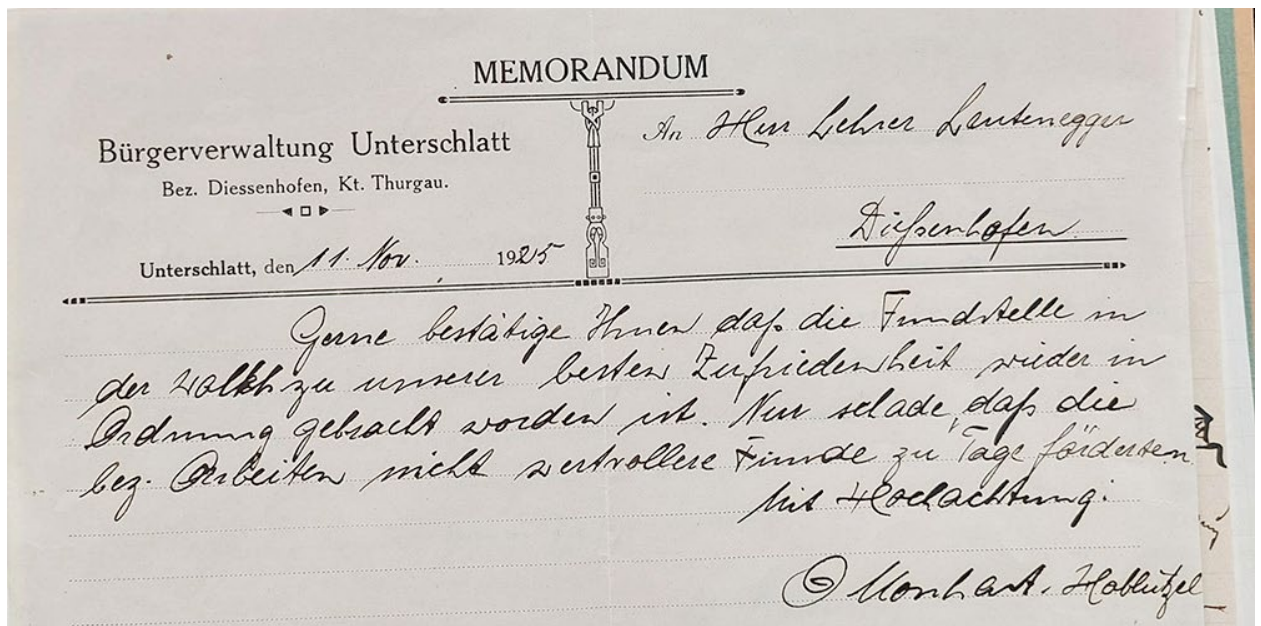 MEMORANDUM
Bürgerverwaltung Unterschlatt
Bez. Diessenhofen, Kt. Thurgau.
Unterschlatt, den 11. Nov. 1925
An Herr Lehrer Leutenegger
Dießenhofen
Gerne bestätige Ihnen daß die Fundstelle in
der zu unserer besten Zufriedenheit wieder in
Ordnung gebracht worden ist. Nur schade, daß die
bez. Arbeiten nicht wertvollere Funde zu Tage förderten
Mit Hochachtung:
Monhart. Hablützel